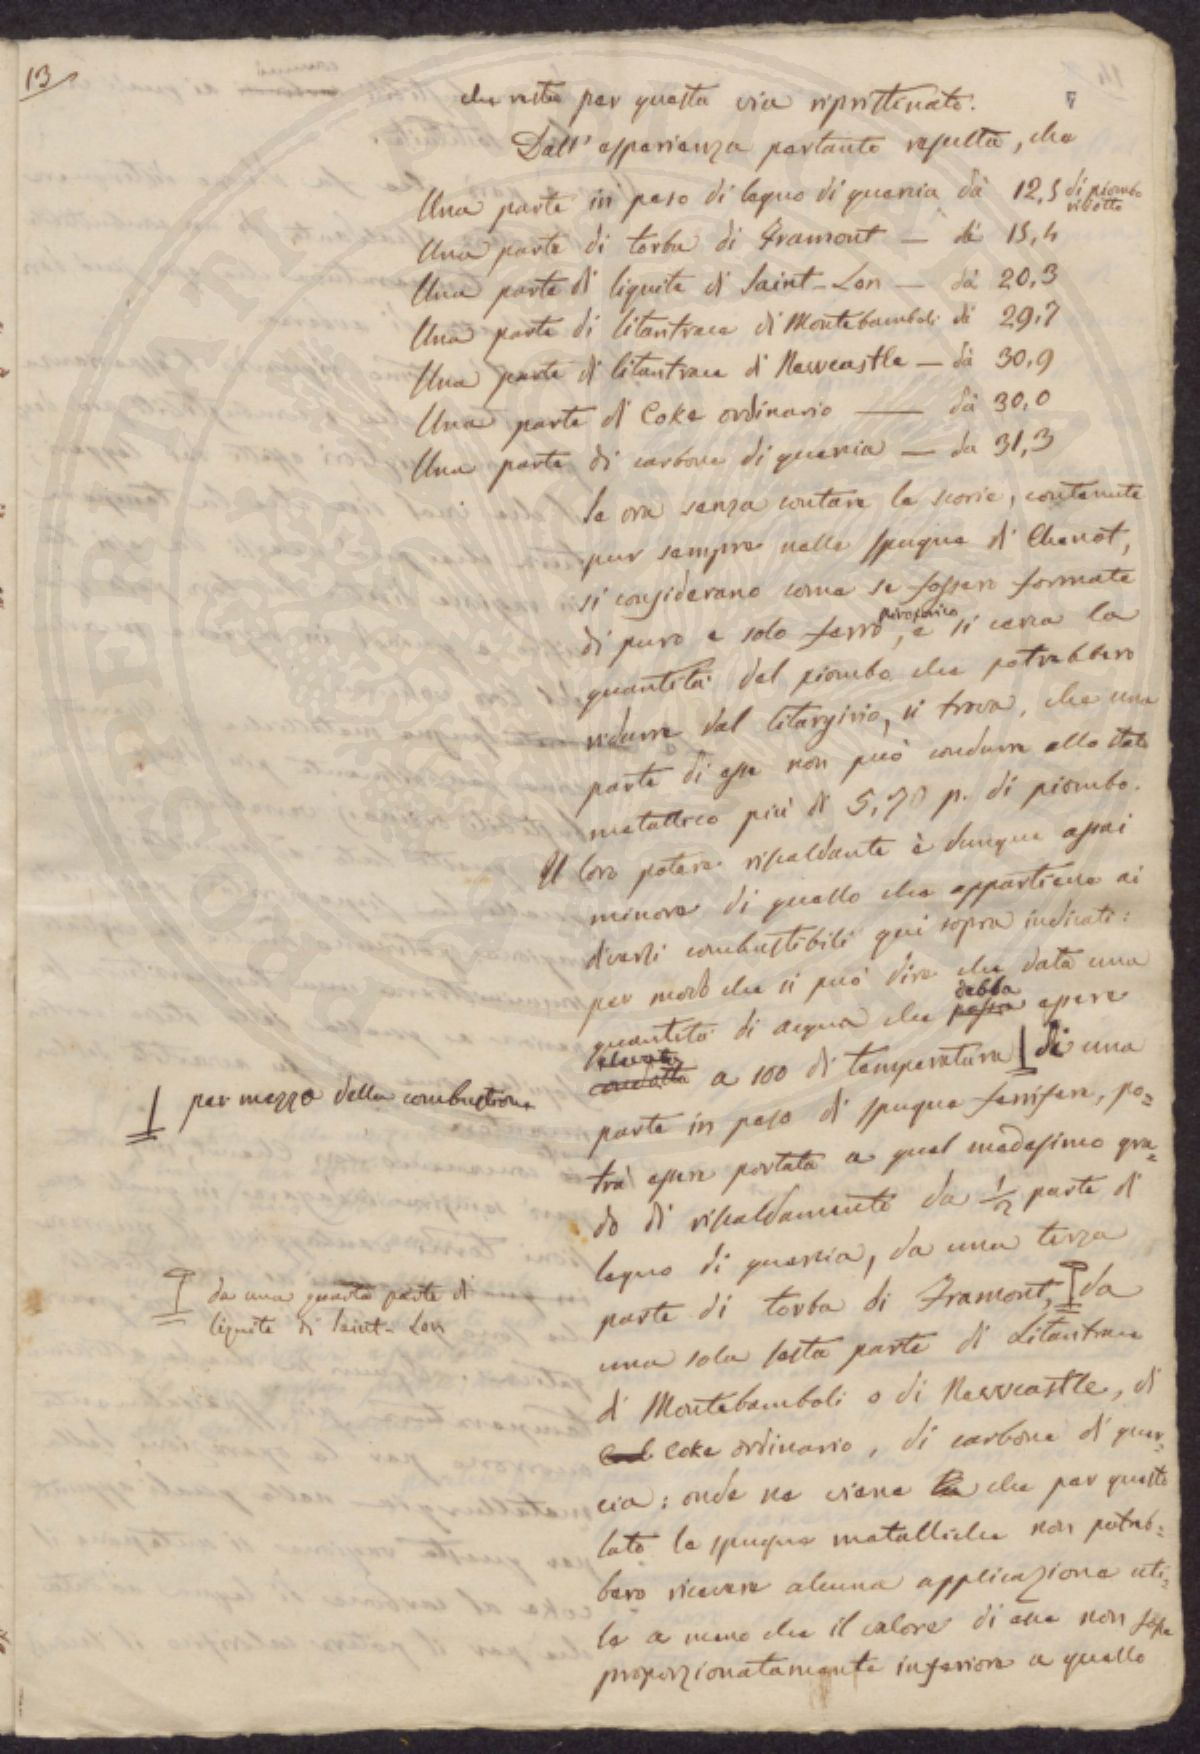 13
che resta per questa via ripristinato.
Dall'esperienza pertanto resulta, che
Una parte in peso di legno di quercia dà 12,5 di piombo
ridotto
Una parte di torba di Framont — dà 15,4
Una parte di lignite di Saint-Lon — dà 20,3
Una parte di litantrace di Montebamboli dà 29,7
Una parte di litantrace di Newcastle — dà 30,9
Una parte di Coke ordinario — dà 30,0
Una parte di carbone di quercia — da 31,3
Se ora senza contare le scorie, contenute
pur sempre nelle spugne di Chenot,
si considerano come se fossero formate
di puro e solo ferro piroforico, e si cerca la
quantità del piombo che potrebbero
ridurre dal litargirio, si trova, che una
parte di esse non può condurre allo stato
metallico più di 5,70 p. di piombo.
Il loro potere riscaldante è dunque assai
minore di quello che appartiene ai
diversi combustibili qui sopra indicati:
per modo che si può dire che data una
quantità di acqua che possa debba essere
condotta elevata a 100 di temperatura di una
per mezzo della combustione
parte in peso di spugne ferrifere, po=
trà essere portata a quel medesimo gra=
do di riscaldamento da 1/2 parte di
legno di quercia, da una terza
parte di torba di Framont, da
da una quarta parte di
lignite di Saint-Lon
una sola sesta parte di Litantrace
di Montebamboli o di Newcastle, di
Coke ordinario, di carbone di quer=
cia: onde ne viene che per questo
lato le spugne metalliche non potreb=
bero ricevere alcuna applicazione uti=
le a meno che il valore di esse non fosse
proporzionatamente inferiore a quello